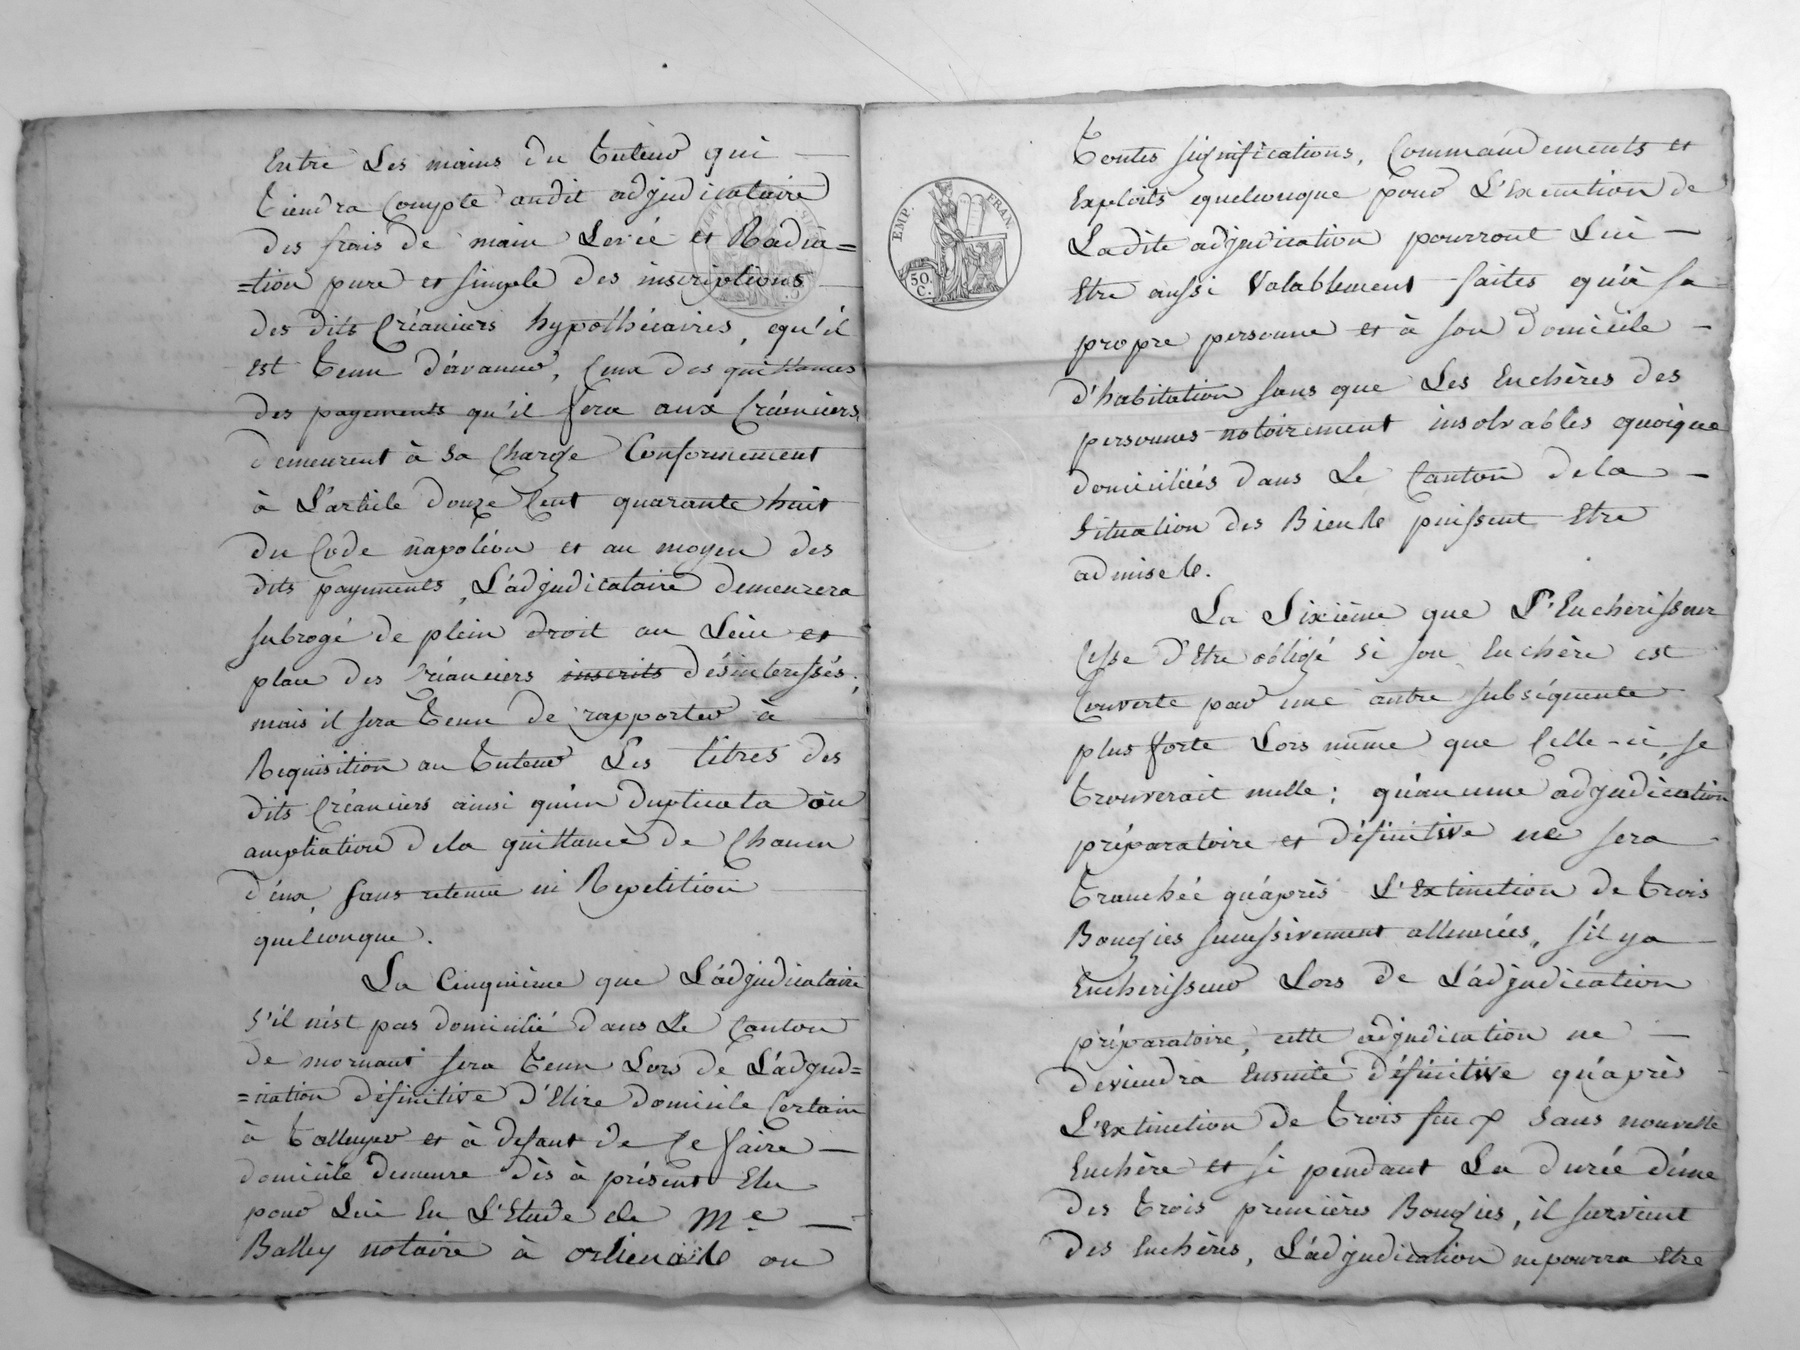 Entre Les mains du Tuteur qui —
Tiendra Compte audit adjudicataire
des frais de main Levée et Radia=
=tion pure et simple des inscriptions
des dits Créanciers hypothécaires, qu'il
est Tenu d'avancer, Ceux des quittances
des payements qu'il fera aux Créanciers
demeurent à sa Charge Conformément
à L'article douze Cent quarante huit
du Code napoléon et au moyen des
dits payements, L'adjudicataire demeurera
subrogé de plein droit au Lieu et
place des Créanciers inscrits désinteressés;
mais il sera Tenu de rapporter à
Requisition au Tuteur Les titres des
dits Créanciers ainsi qu'un duplicata ou
ampliation dela quittance de Chacun
d'eux, sans retenue ni Repetition —
quelconque.
La Cinquième que L'adjudicataire
s'il n'est pas domicilié dans Le Canton
de mornant sera Tenu Lors de L'adjud=
=ication définitive d'Elire domicile Certain
à Talluyer et à defaut de Ce faire —
domicile demeure dès à présent Elu
pour Lui En L'Etude de Me. —
Balley notaire à orlienas ou
EMP. FRAN.
50.
C.
Toutes significations, Commandements et
Exploits quelconque pour L'Execution de
Ladite adjudication pourront Lui —
Etre aussi Valablement faites qu'à sa
propre personne et à son domicile —
d'habitation sans que Les Enchères des
personnes notoirement insolvables quoique
domiciliés dans Le Canton dela —
Situation des Biens puissent Etre
admises.
La Sixième que L'Encherisseur
Cesse d'Etre obligé si son Enchère est
Couverte par une autre subséquente
plus forte Lors même que Celle-ci, se
Trouverait nulle; qu'aucune adjudication
préparatoire et définitive ne sera
Tranchée qu'après L'Extinction de Trois
Bougies successivement allumées, s'il y a —
Encherisseur Lors de L'adjudication
préparatoire, cette adjudication ne —
deviendra Ensuite définitive qu'après
L'Extinction de Trois feux Sans nouvelle
Enchère et si pendant La durée d'une
des Trois premières Bougies, il survient
des Enchères, L'adjudication ne pourra Etre